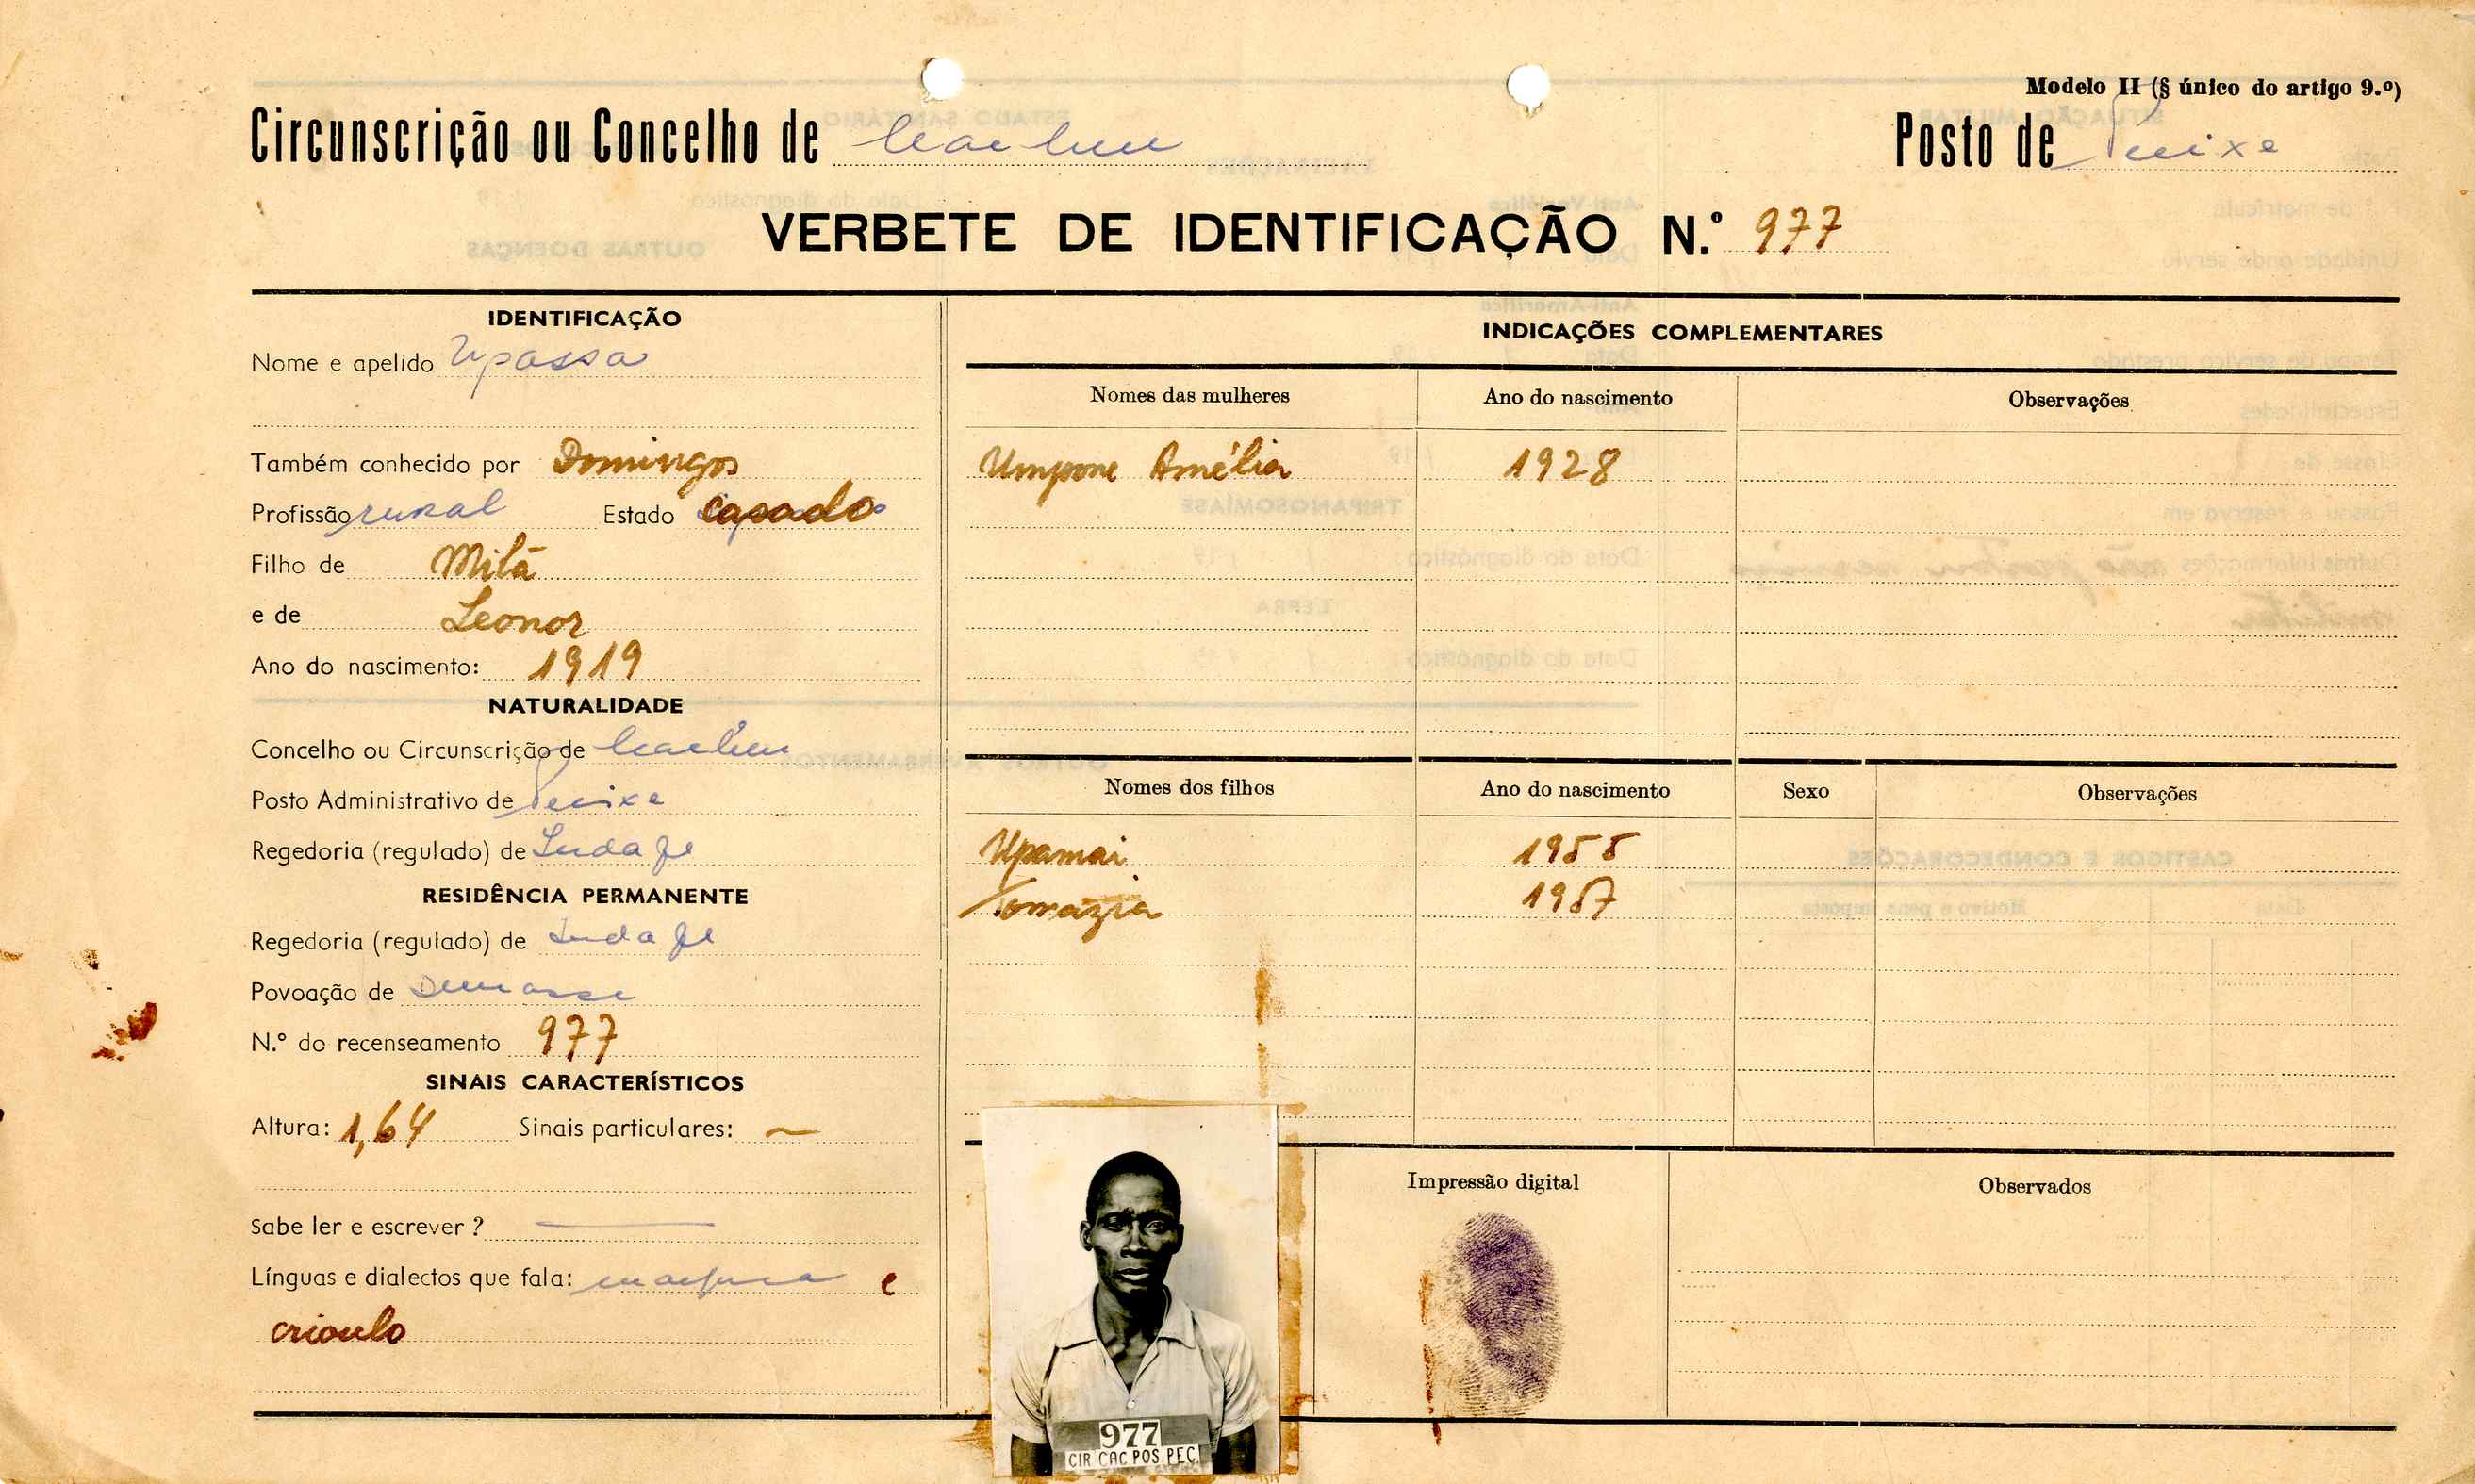 Modelo II (§ único do artigo 9.º)
Circunscrição ou Concelho de Cacheu
Posto de Pecixe
VERBETE DE IDENTIFICAÇÃO N.º 977
IDENTIFICAÇÃO
Nome e apelido Upassa
Também conhecido por Domingos
Profissão rural Estado casado
Filho de Milã
e de Leonor
Ano do nascimento: 1919
NATURALIDADE
Concelho ou Circunscrição de Cacheu
Posto Administrativo de Pecixe
Regedoria (regulado) de
RESIDÊNCIA PERMANENTE
Regedoria (regulado) de
Povoação de
N.º do recenseamento 977
SINAIS CARACTERÍSTICOS
Altura: 1,64 Sinais particulares: —
Sabe ler e escrever ? —
Línguas e dialectos que fala: e
crioulo
INDICAÇÕES COMPLEMENTARES
Nomes das mulheres Ano do nascimento Observações
Umpone Amélia 1928
Nomes dos filhos Ano do nascimento Sexo Observações
Upamai 1955
Tomázia 1957
Impressão digital Observados
977
CIR CAC POS PEC